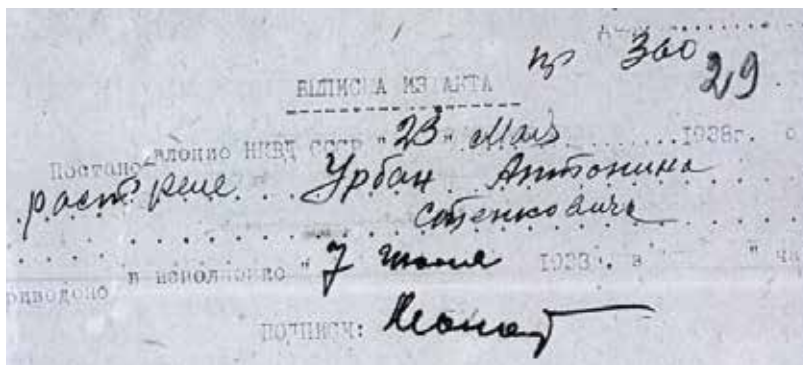 пр 360
29
ВЫПИСКА ИЗ АКТА
Постановлению НКВД СССР "23" Мая 1938г. о
расстреле Урбан Антонина
Стенковича
приводено в исполнено "7 июня 1938г. в " ча
ПОДПИСИ: